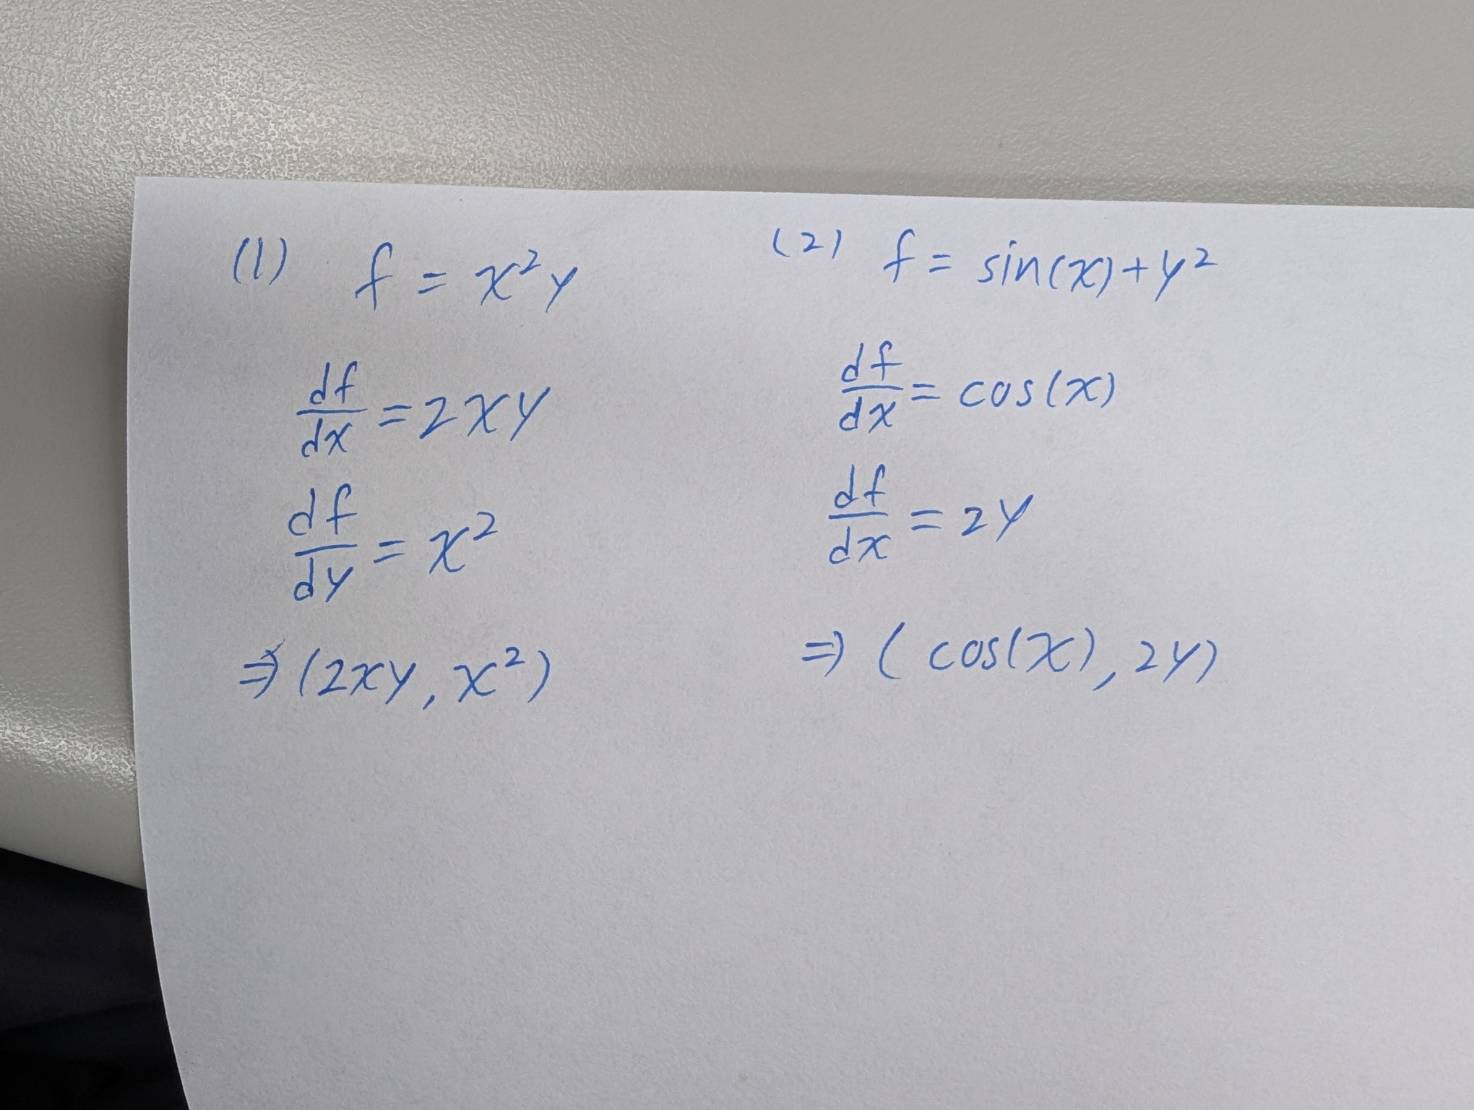 (1) f = x²y
df/dx = 2xy
df/dy = x²
⇒ (2xy, x²)
(2) f = sin(x) + y²
df/dx = cos(x)
df/dx = 2y
⇒ (cos(x), 2y)